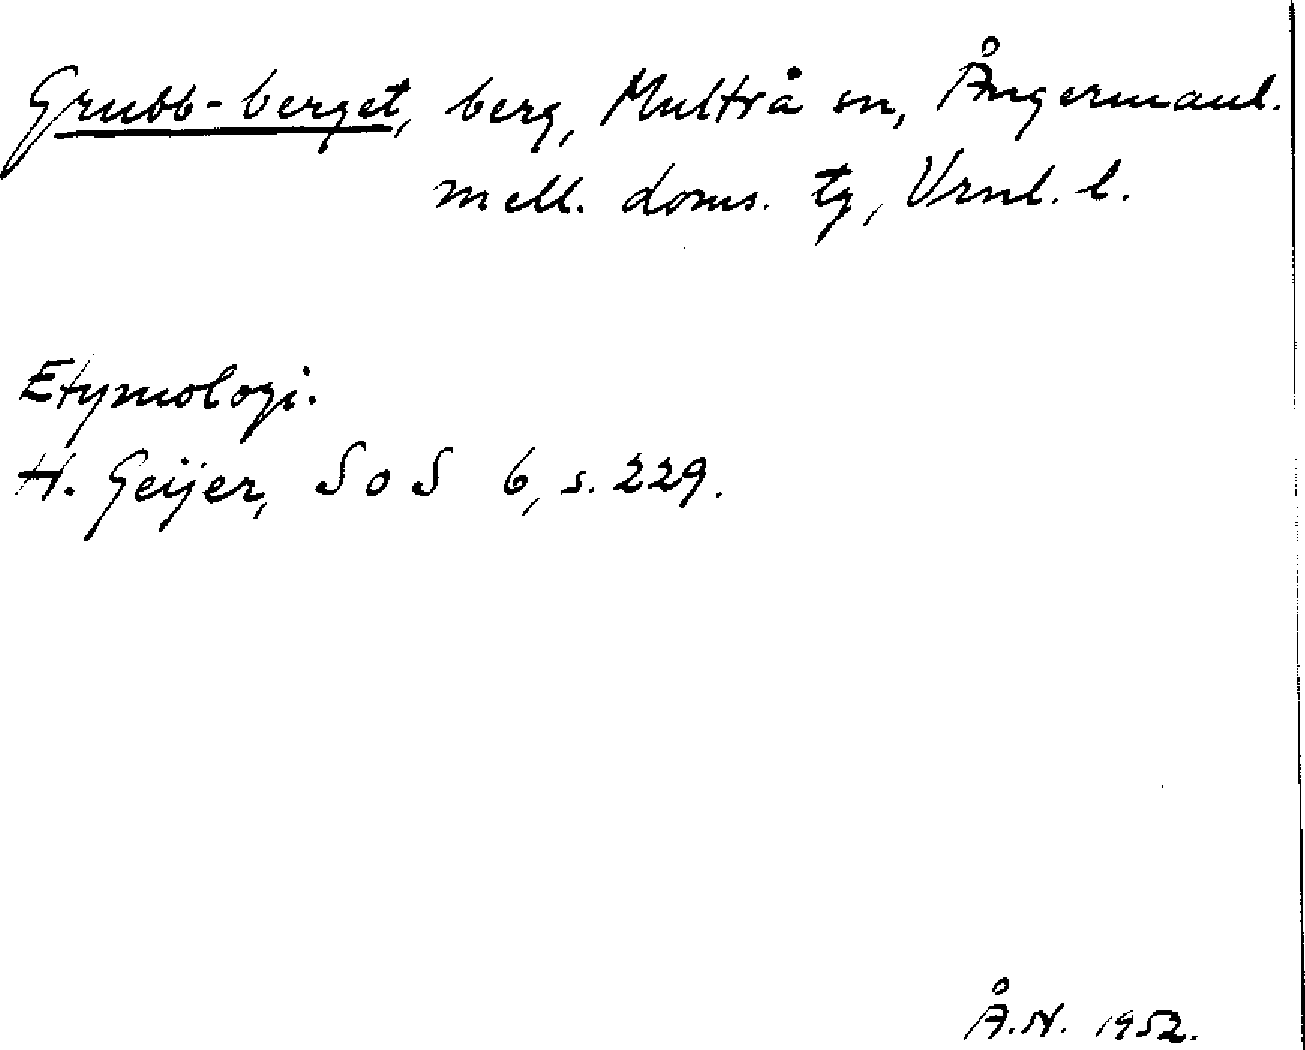 Grubb-berget, berg, Multrå sn, Ångermanl.
mell. doms. tg, Vrnl. l.
Etymologi.
H. Geijer, SoS 6, s. 229.
Å.N. 1952.